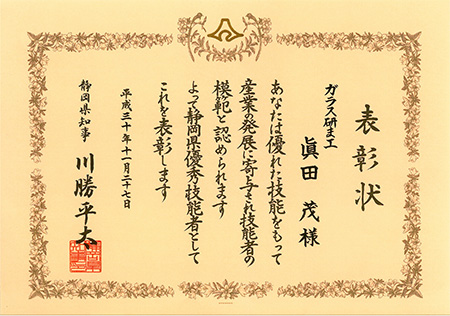 表彰状
ガラス研ま工
眞田 茂様
あなたは優れた技能をもって
産業の発展に寄与され技能者の
模範と認められます
よって静岡県優秀技能者として
これを表彰します
平成三十年十一月二十七日
静岡県知事
川勝平太